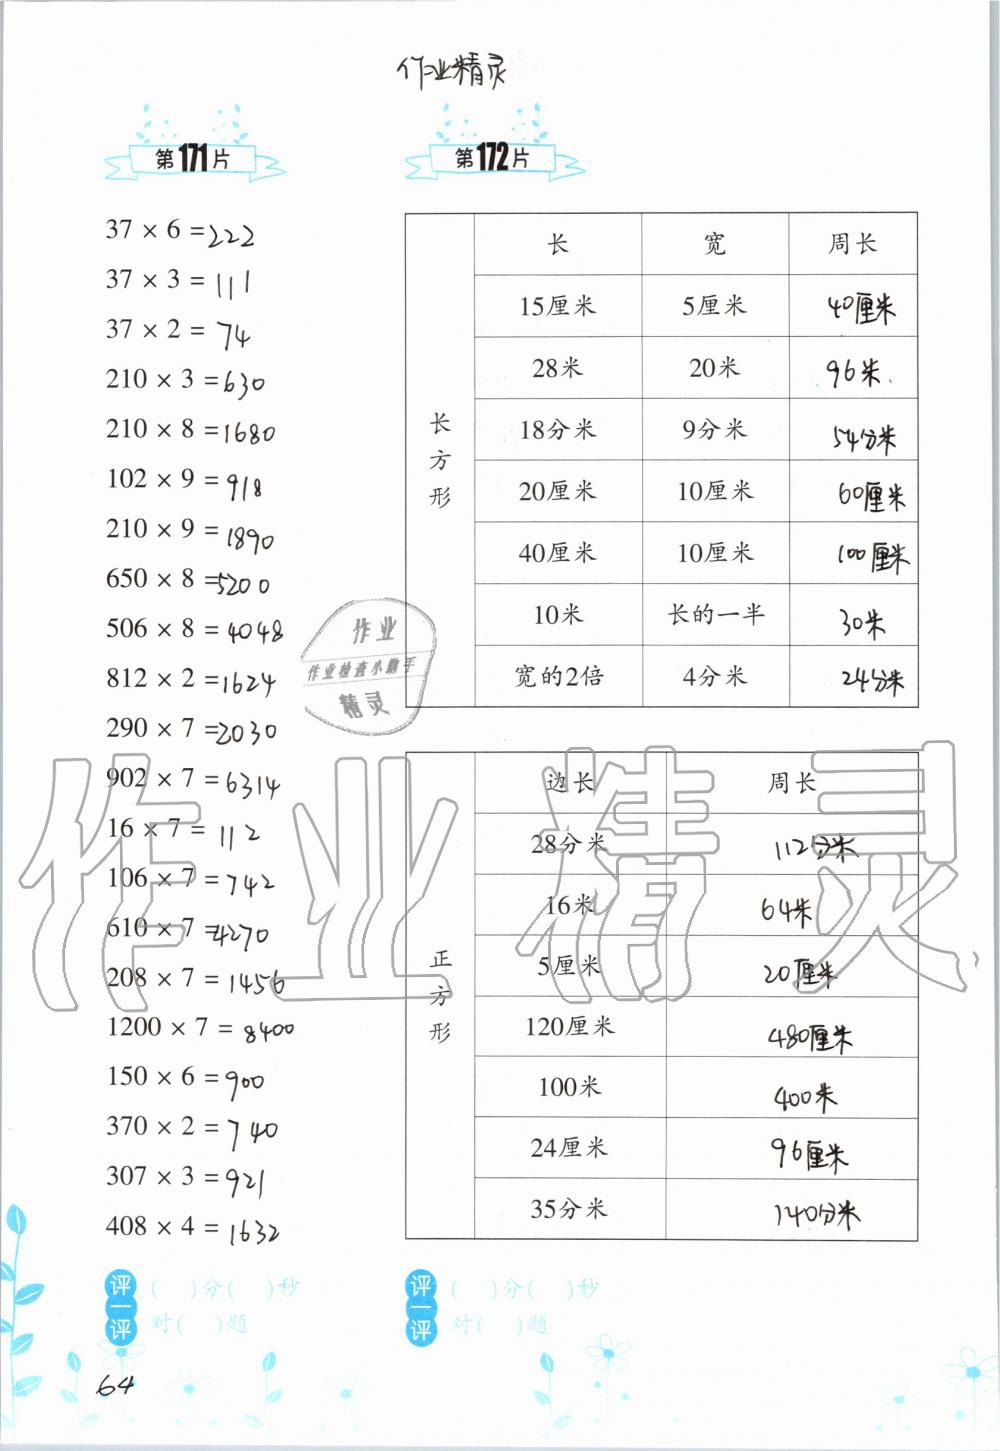 作业精灵
第171片
37 × 6 = 222
37 × 3 = 111
37 × 2 = 74
210 × 3 = 630
210 × 8 = 1680
102 × 9 = 918
210 × 9 = 1890
650 × 8 = 5200
506 × 8 = 4048
812 × 2 = 1624
290 × 7 = 2030
902 × 7 = 6314
16 × 7 = 112
106 × 7 = 742
610 × 7 = 4270
208 × 7 = 1456
1200 × 7 = 8400
150 × 6 = 900
370 × 2 = 740
307 × 3 = 921
408 × 4 = 1632
评一评
( )分( )秒
对( )题
第172片
长方形
长 宽 周长
15厘米 5厘米 40厘米
28米 20米 96米
18分米 9分米 54分米
20厘米 10厘米 60厘米
40厘米 10厘米 100厘米
10米 长的一半 30米
宽的2倍 4分米 24分米
正方形
边长 周长
28分米 112分米
16米 64米
5厘米 20厘米
120厘米 480厘米
100米 400米
24厘米 96厘米
35分米 140分米
评一评
( )分( )秒
对( )题
作业
作业检查小帮手
精灵
作业精灵
64